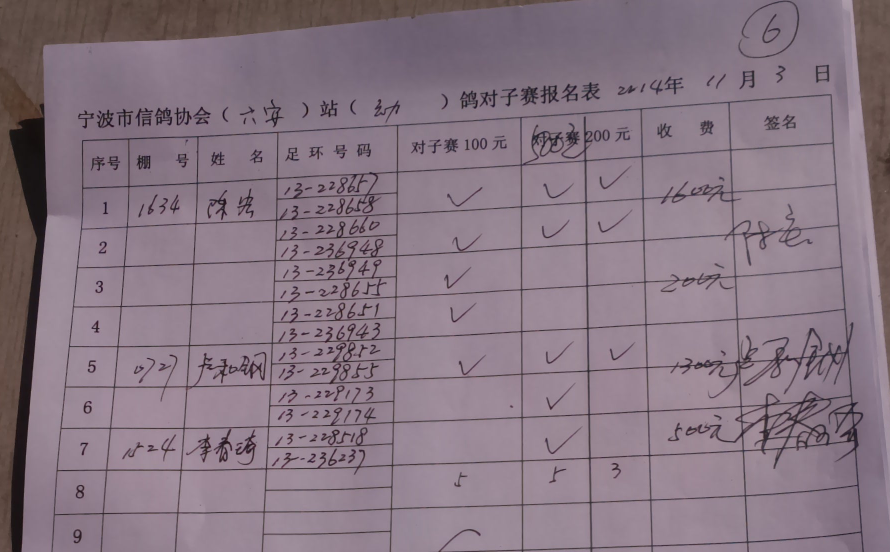 6
宁波市信鸽协会（六安）站（幼）鸽对子赛报名表 2014年 11月 3日
序号 棚号 姓名 足环号码 对子赛100元 对子赛200元 收费 签名
500元
1 1634 陈宏 13-228657 ✓ ✓ ✓ 1600元
13-228658
2 13-228660 ✓ ✓ ✓
13-236948
3 13-236949 ✓ 200元
13-228655
4 13-228651 ✓
13-236943
5 0727 卢和钢 13-229852 ✓ ✓ ✓ 1300元
13-229855
6 13-229173 ✓
13-229174
7 1524 李春琦 13-228518 ✓ 500元
13-236237
8 5 5 3
9